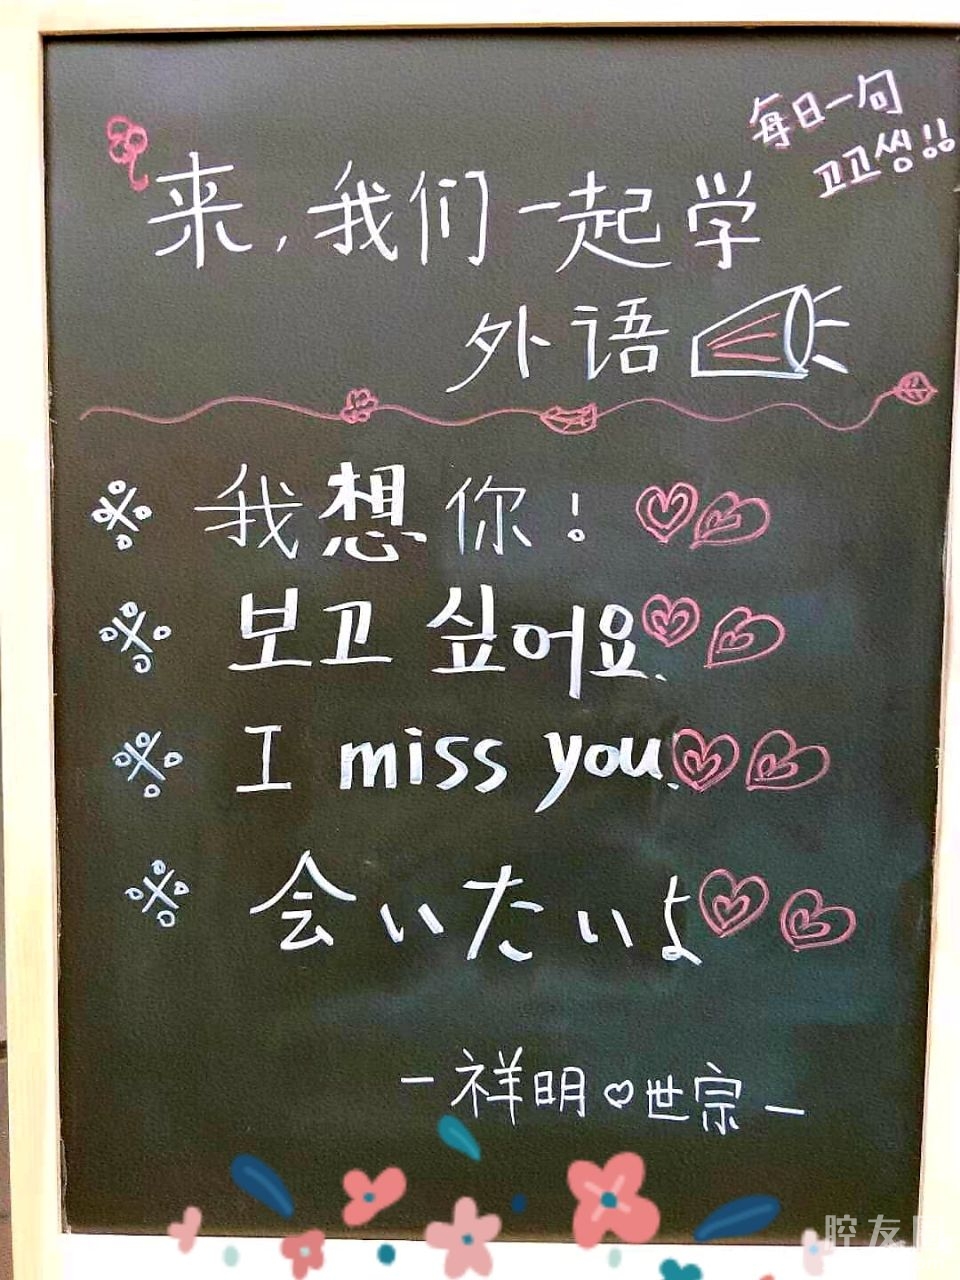 每日一句
고고씽!!
来,我们一起学
外语
我想你!
보고 싶어요.
I miss you!
会いたいよ
-祥明♡世宗-
腔友